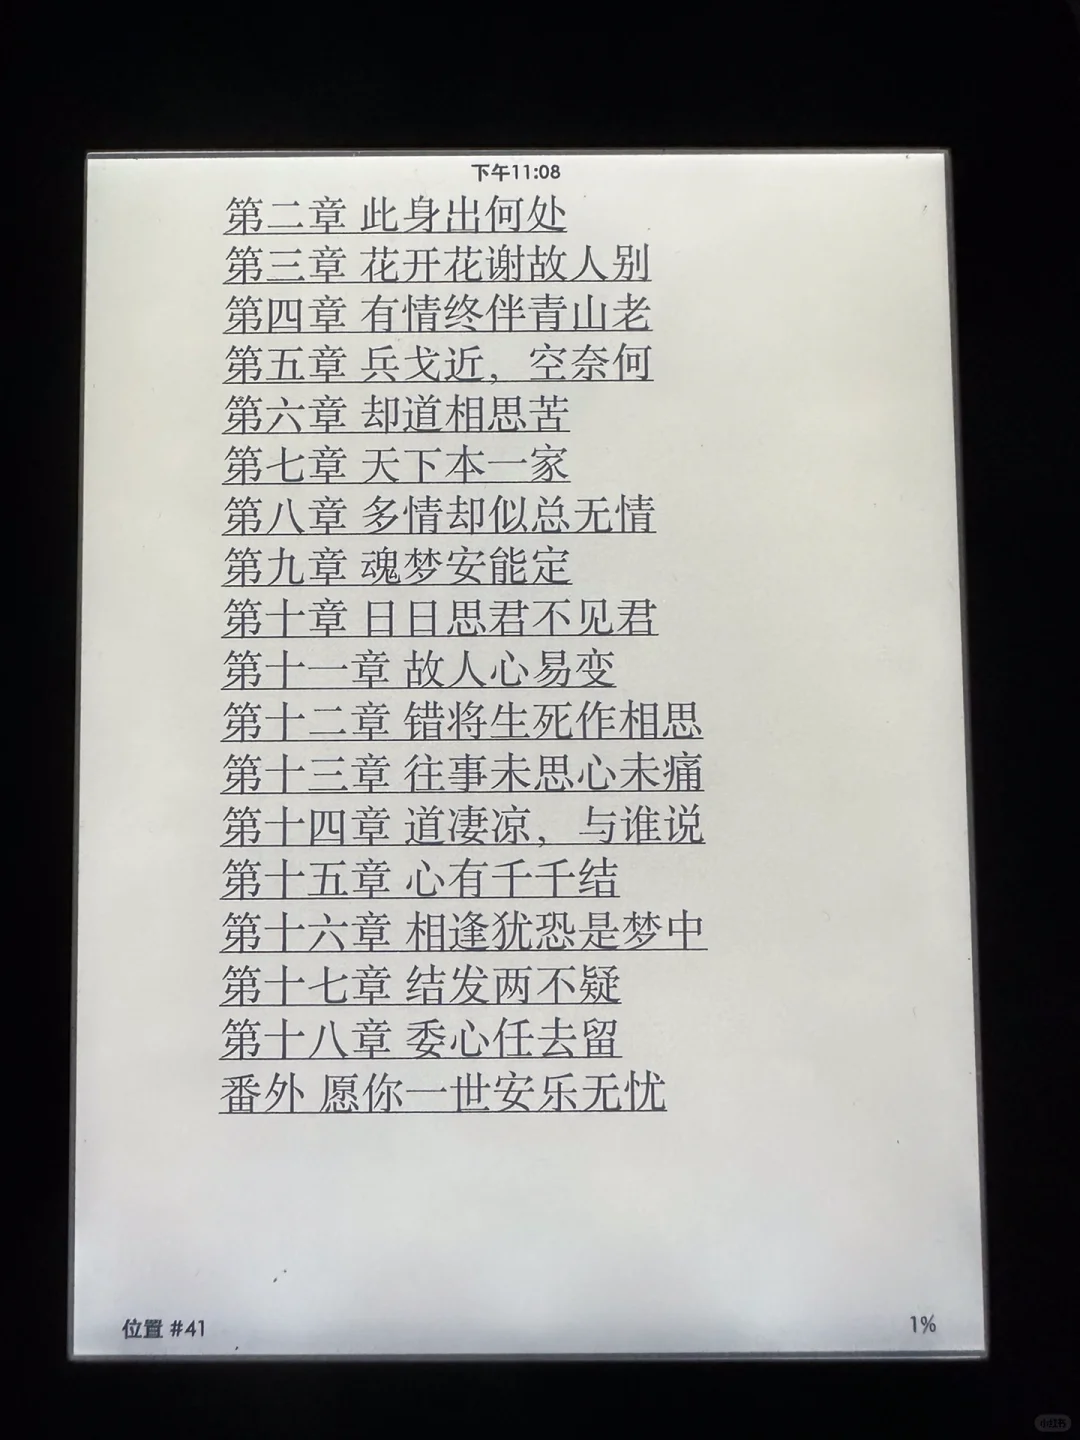 下午11:08
第二章 此身出何处
第三章 花开花谢故人别
第四章 有情终伴青山老
第五章 兵戈近，空奈何
第六章 却道相思苦
第七章 天下本一家
第八章 多情却似总无情
第九章 魂梦安能定
第十章 日日思君不见君
第十一章 故人心易变
第十二章 错将生死作相思
第十三章 往事未思心未痛
第十四章 道凄凉，与谁说
第十五章 心有千千结
第十六章 相逢犹恐是梦中
第十七章 结发两不疑
第十八章 委心任去留
番外 愿你一世安乐无忧
位置 #41
1%